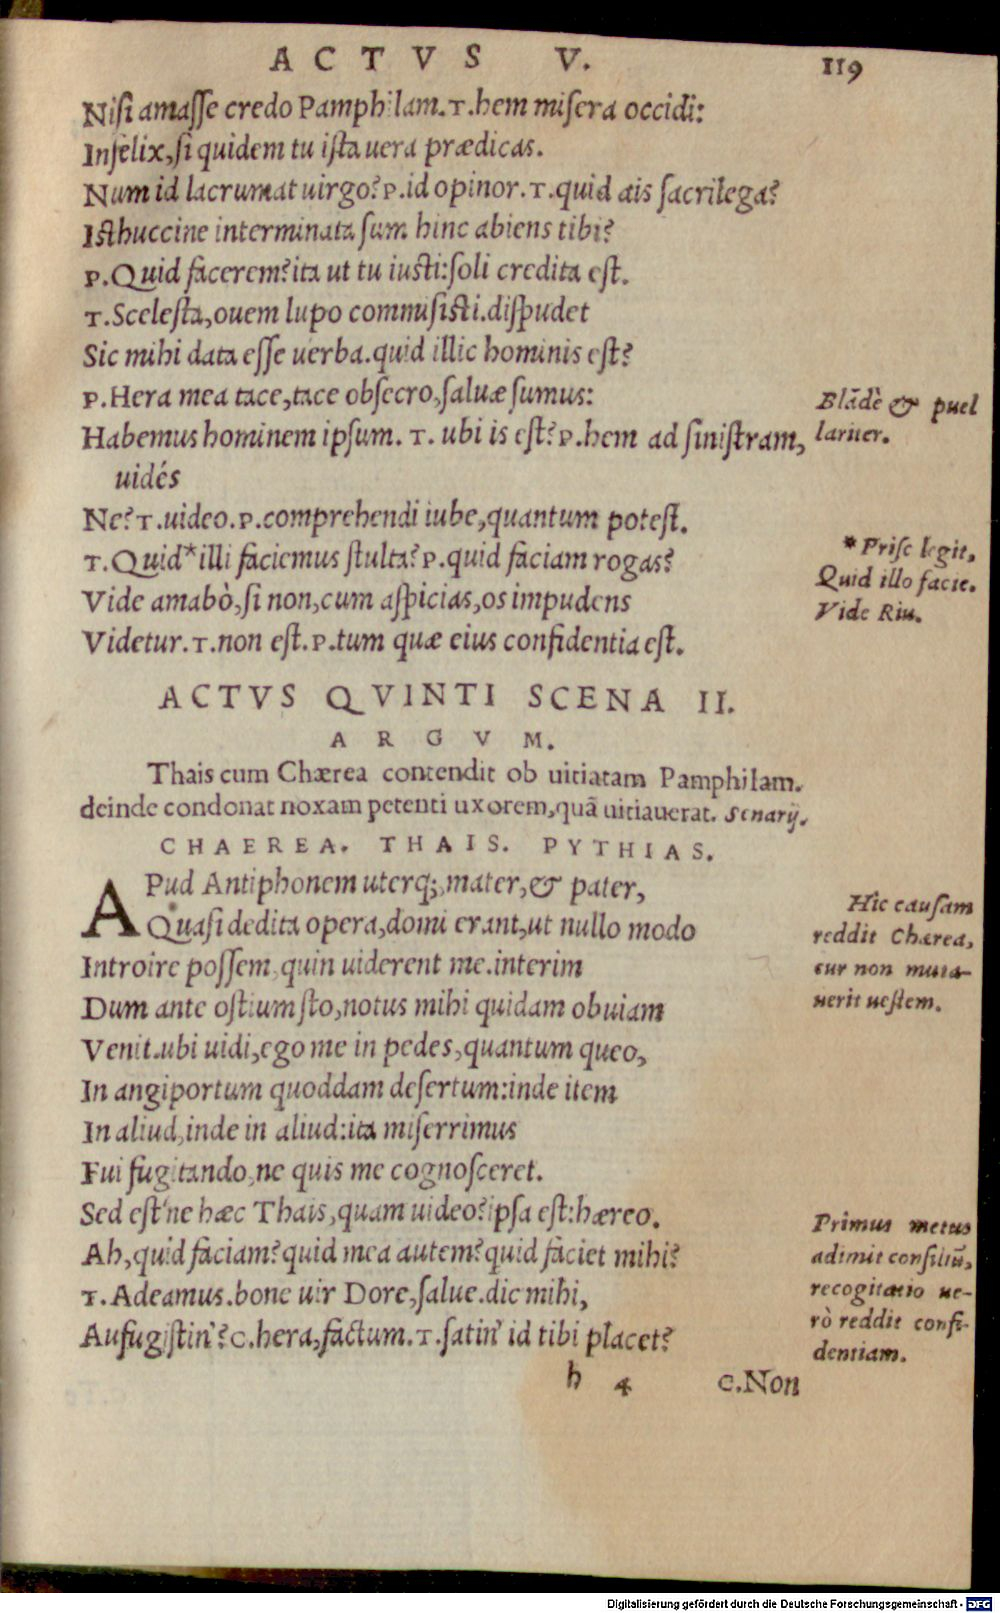 ACTVS V. 119
Nisi amasse credo Pamphilam. T. hem misera occidi:
Infelix, si quidem tu ista uera prædicas.
Num id lacrumat uirgo? P. id opinor. T. quid ais sacrilega?
Isthuccine interminata sum hinc abiens tibi?
P. Quid facerem? ita ut tu iusti: soli credita est.
T. Scelesta, ouem lupo commisisti. dispudet
Sic mihi data esse uerba. quid illic hominis est?
P. Hera mea tace, tace obsecro, saluæ sumus:
Habemus hominem ipsum. T. ubi is est? P. hem ad sinistram,
uidés
Blādè & puel
lariter.
Ne? T. uideo. P. comprehendi iube, quantum potest.
T. Quid* illi faciemus stulta? P. quid faciam rogas?
Vide amabò, si non, cum aspicias, os impudens
Videtur. T. non est. P. tum quæ eius confidentia est.
* Prisc legit,
Quid illo facie.
Vide Riu.
ACTVS QVINTI SCENA II.
ARGVM.
Thais cum Chærea contendit ob uitiatam Pamphilam.
deinde condonat noxam petenti uxorem, quā uitiauerat. Senarij.
CHAEREA. THAIS. PYTHIAS.
APud Antiphonem uterq;, mater, & pater,
Quasi dedita opera, domi erant, ut nullo modo
Introire possem, quin uiderent me. interim
Dum ante ostium sto, notus mihi quidam obuiam
Venit. ubi uidi, ego me in pedes, quantum queo,
In angiportum quoddam desertum: inde item
In aliud, inde in aliud: ita miserrimus
Fui fugitando, ne quis me cognosceret.
Hic causam
reddit Chærea,
cur non muta-
uerit uestem.
Sed est'ne hæc Thais, quam uideo? ipsa est: hæreo.
Ah, quid faciam? quid mea autem? quid faciet mihi?
T. Adeamus. bone uir Dore, salue. dic mihi,
Aufugistin'? C. hera, factum. T. satin' id tibi placet?
Primus metus
adimit consiliū,
recogitatio ue-
rò reddit confi-
dentiam.
h 4 C. Non
Digitalisierung gefördert durch die Deutsche Forschungsgemeinschaft - DFG